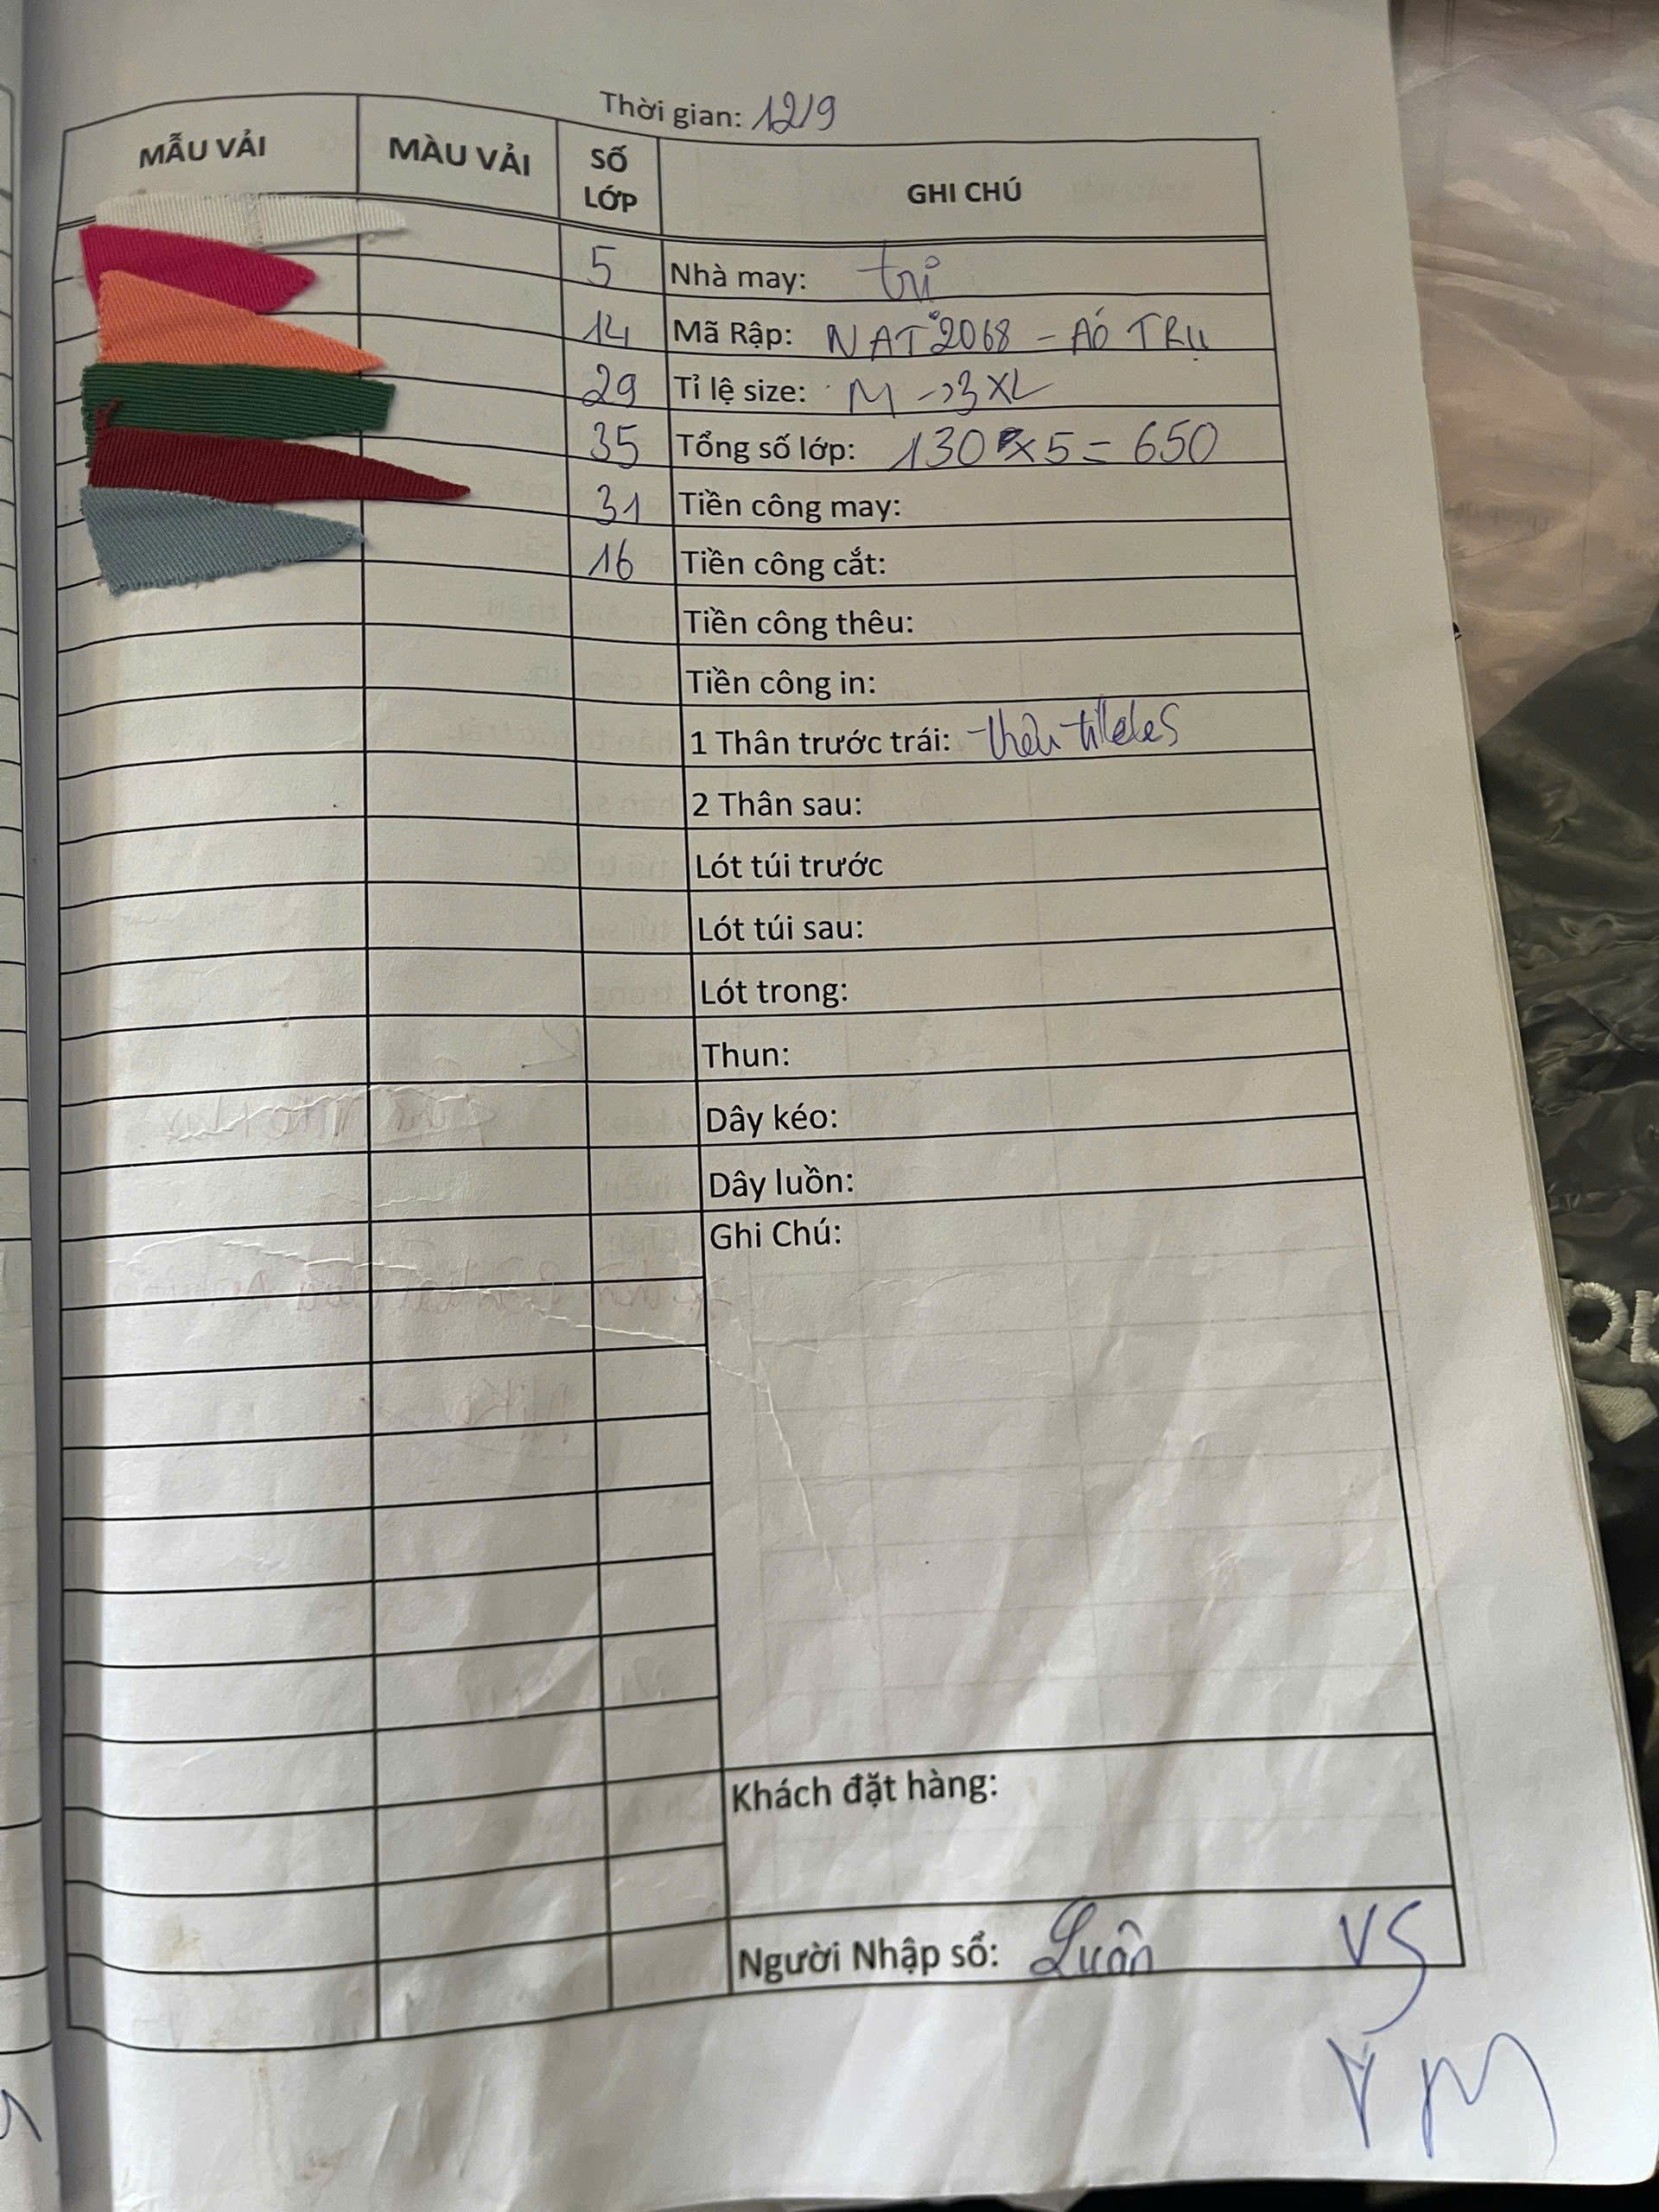 Thời gian: 12/9
MẪU VẢI MÀU VẢI SỐ LỚP GHI CHÚ
5 Nhà may: trí
14 Mã Rập: NAT 2068 - ÁO TRỤ
29 Tỉ lệ size: M -> 3XL
35 Tổng số lớp: 130 x 5 = 650
31 Tiền công may:
16 Tiền công cắt:
Tiền công thêu:
Tiền công in:
1 Thân trước trái: thêu
2 Thân sau:
Lót túi trước
Lót túi sau:
Lót trong:
Thun:
Dây kéo:
Dây luồn:
Ghi Chú:
Khách đặt hàng:
Người Nhập sổ: Luân VS